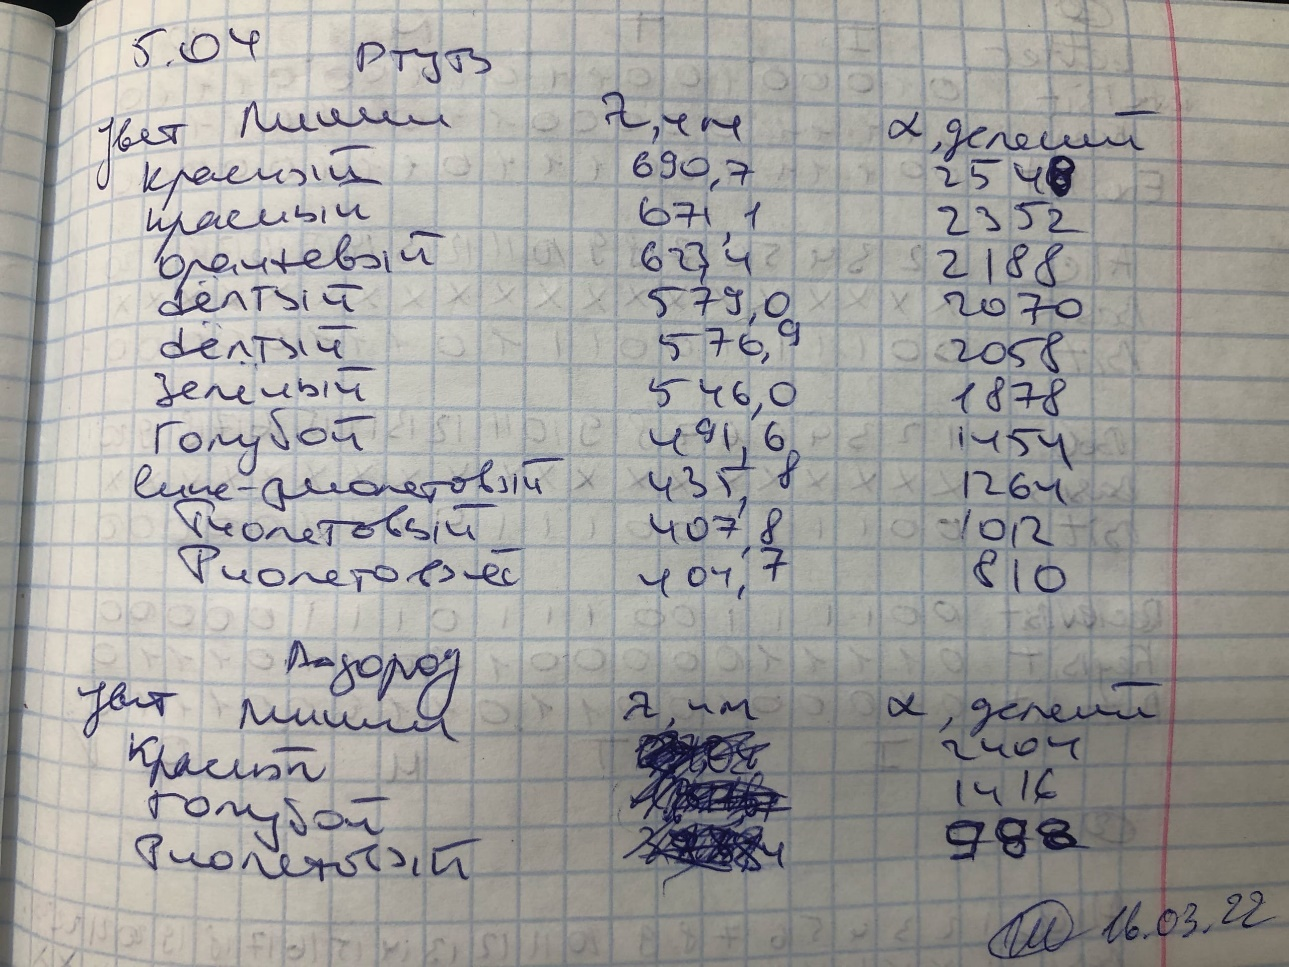 5.04 Ртуть
Цвет Линии λ, нм α, делений
Красный 690,7 2548
Красный 671,1 2352
Оранжевый 623,4 2188
Жёлтый 579,0 2070
Жёлтый 576,9 2058
Зелёный 546,0 1878
Голубой 491,6 1454
Сине-фиолетовый 435,8 1264
Фиолетовый 407,8 1012
Фиолетовый 404,7 810
Водород
Цвет Линии λ, нм α, делений
Красный 2404
Голубой 1416
Фиолетовый 988
16.03.22